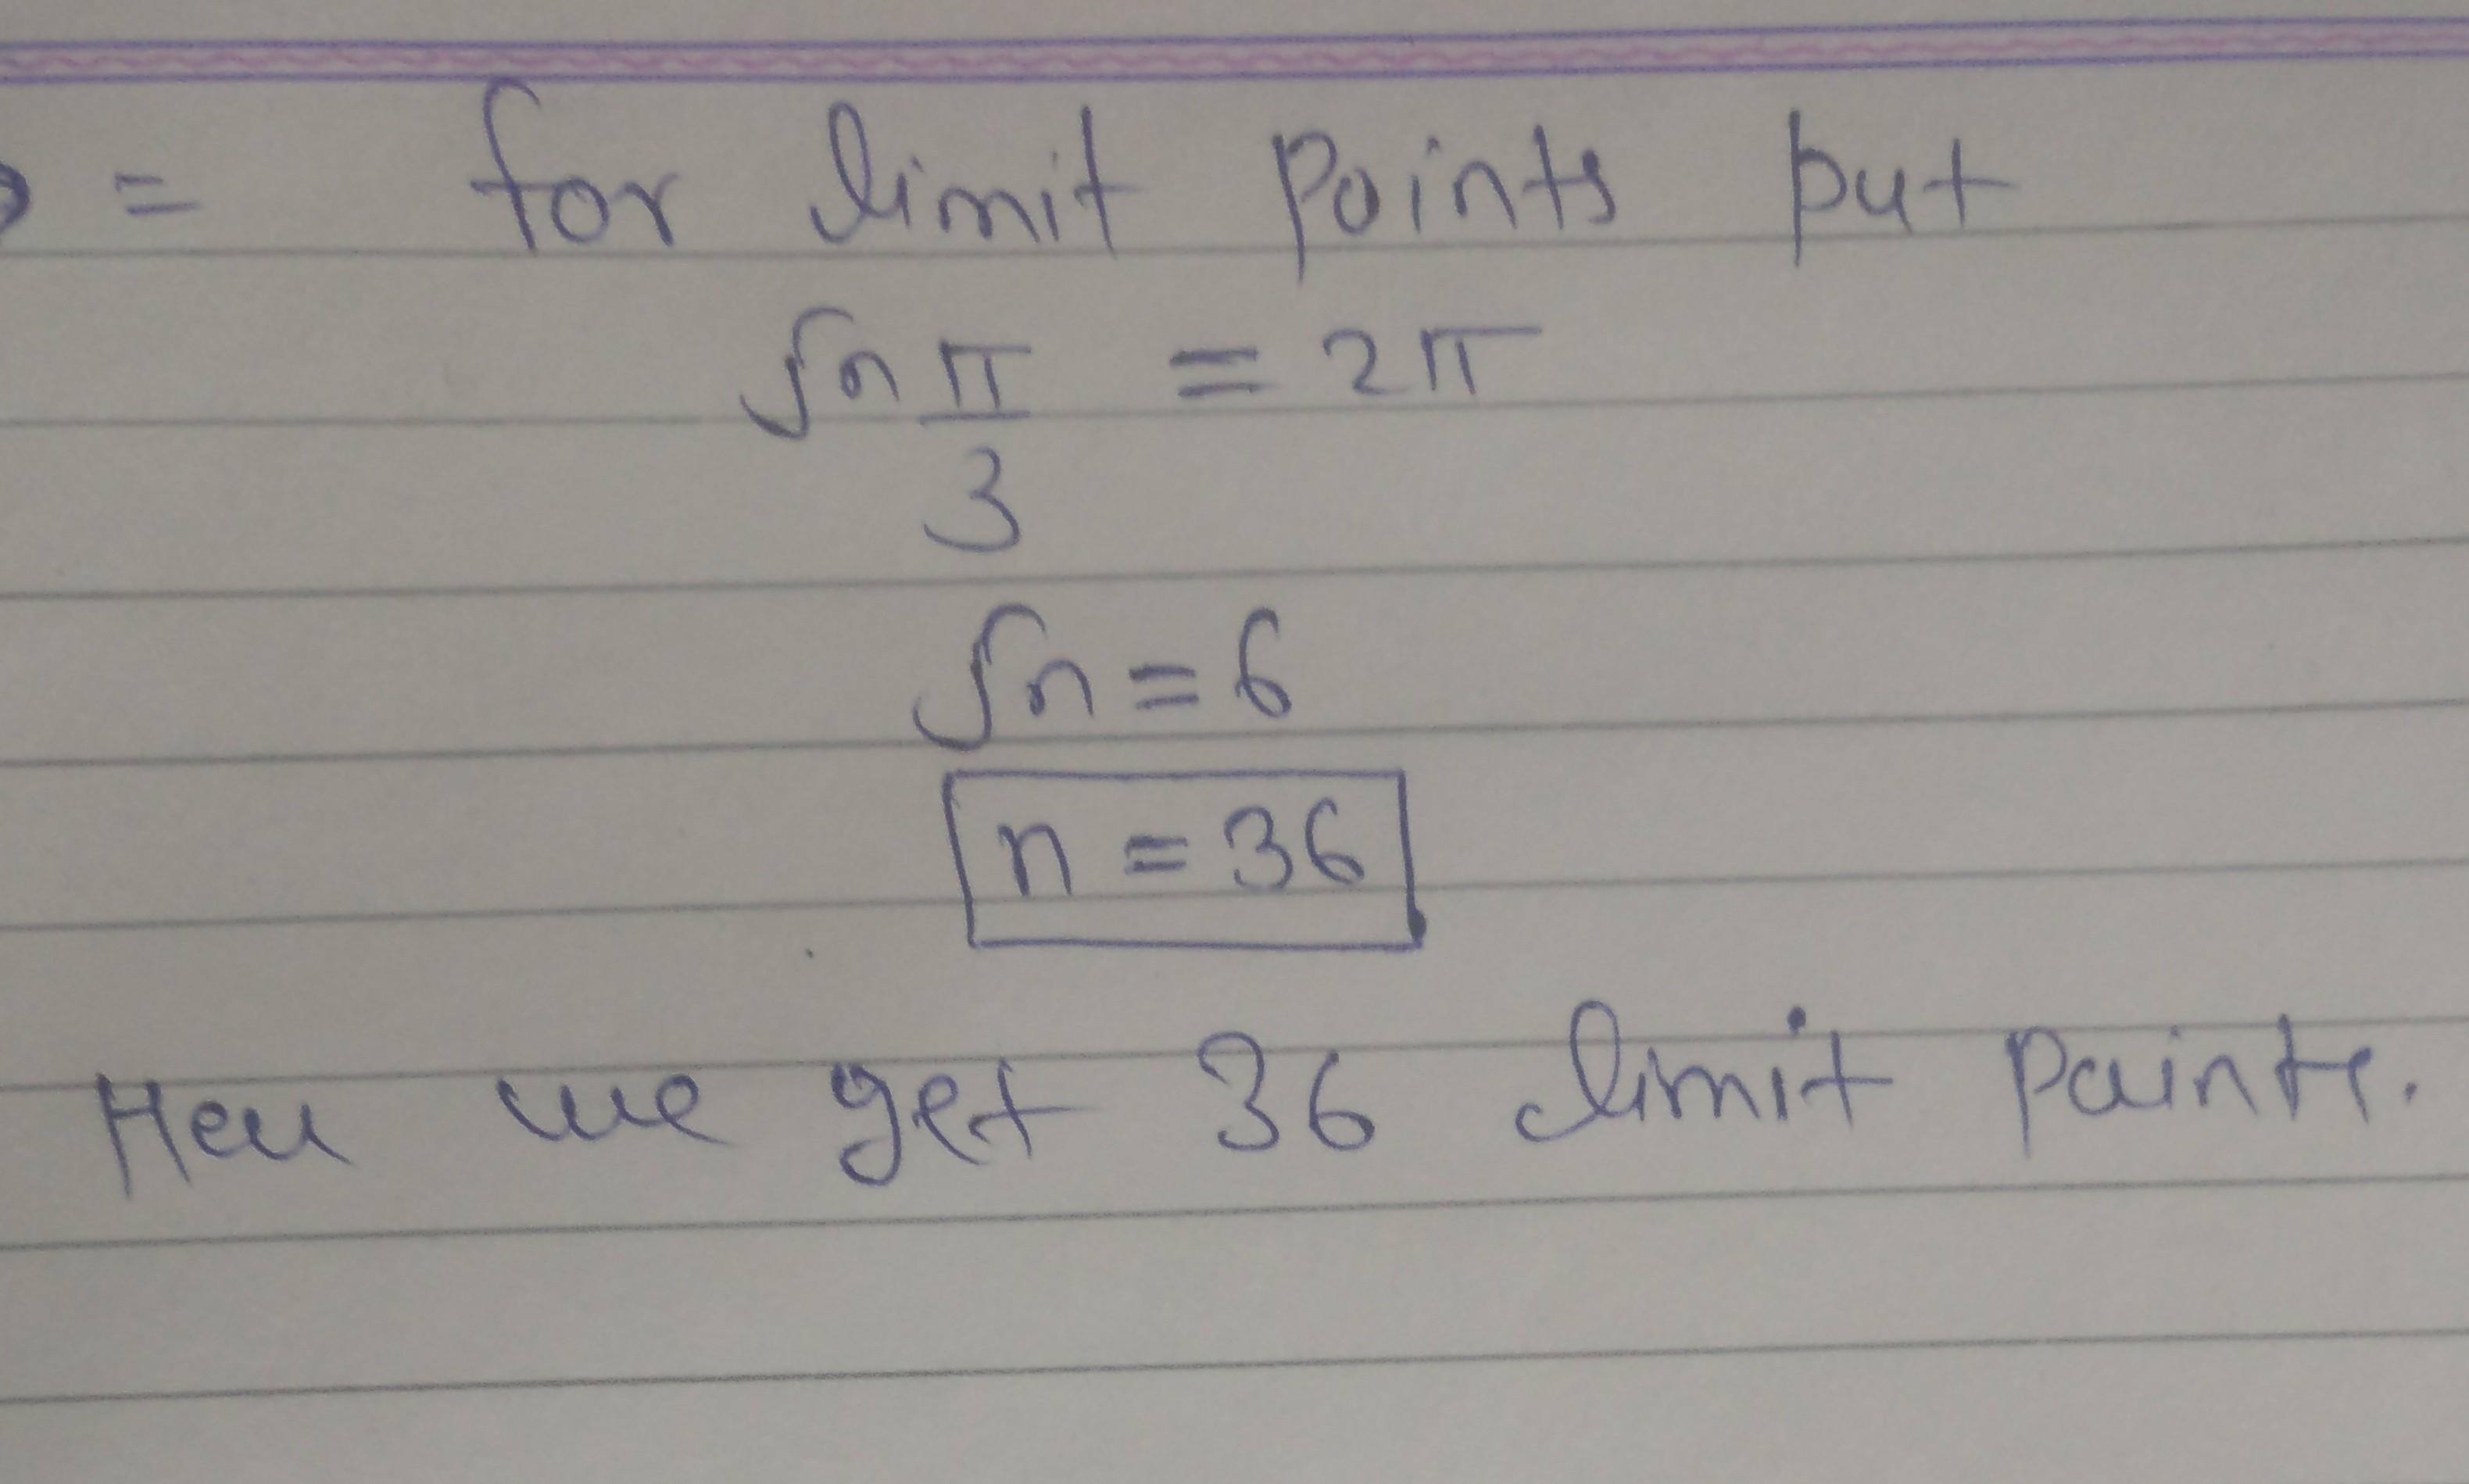 = for limit points put
√n π/3 = 2π
√n = 6
n = 36
Here we get 36 limit points.